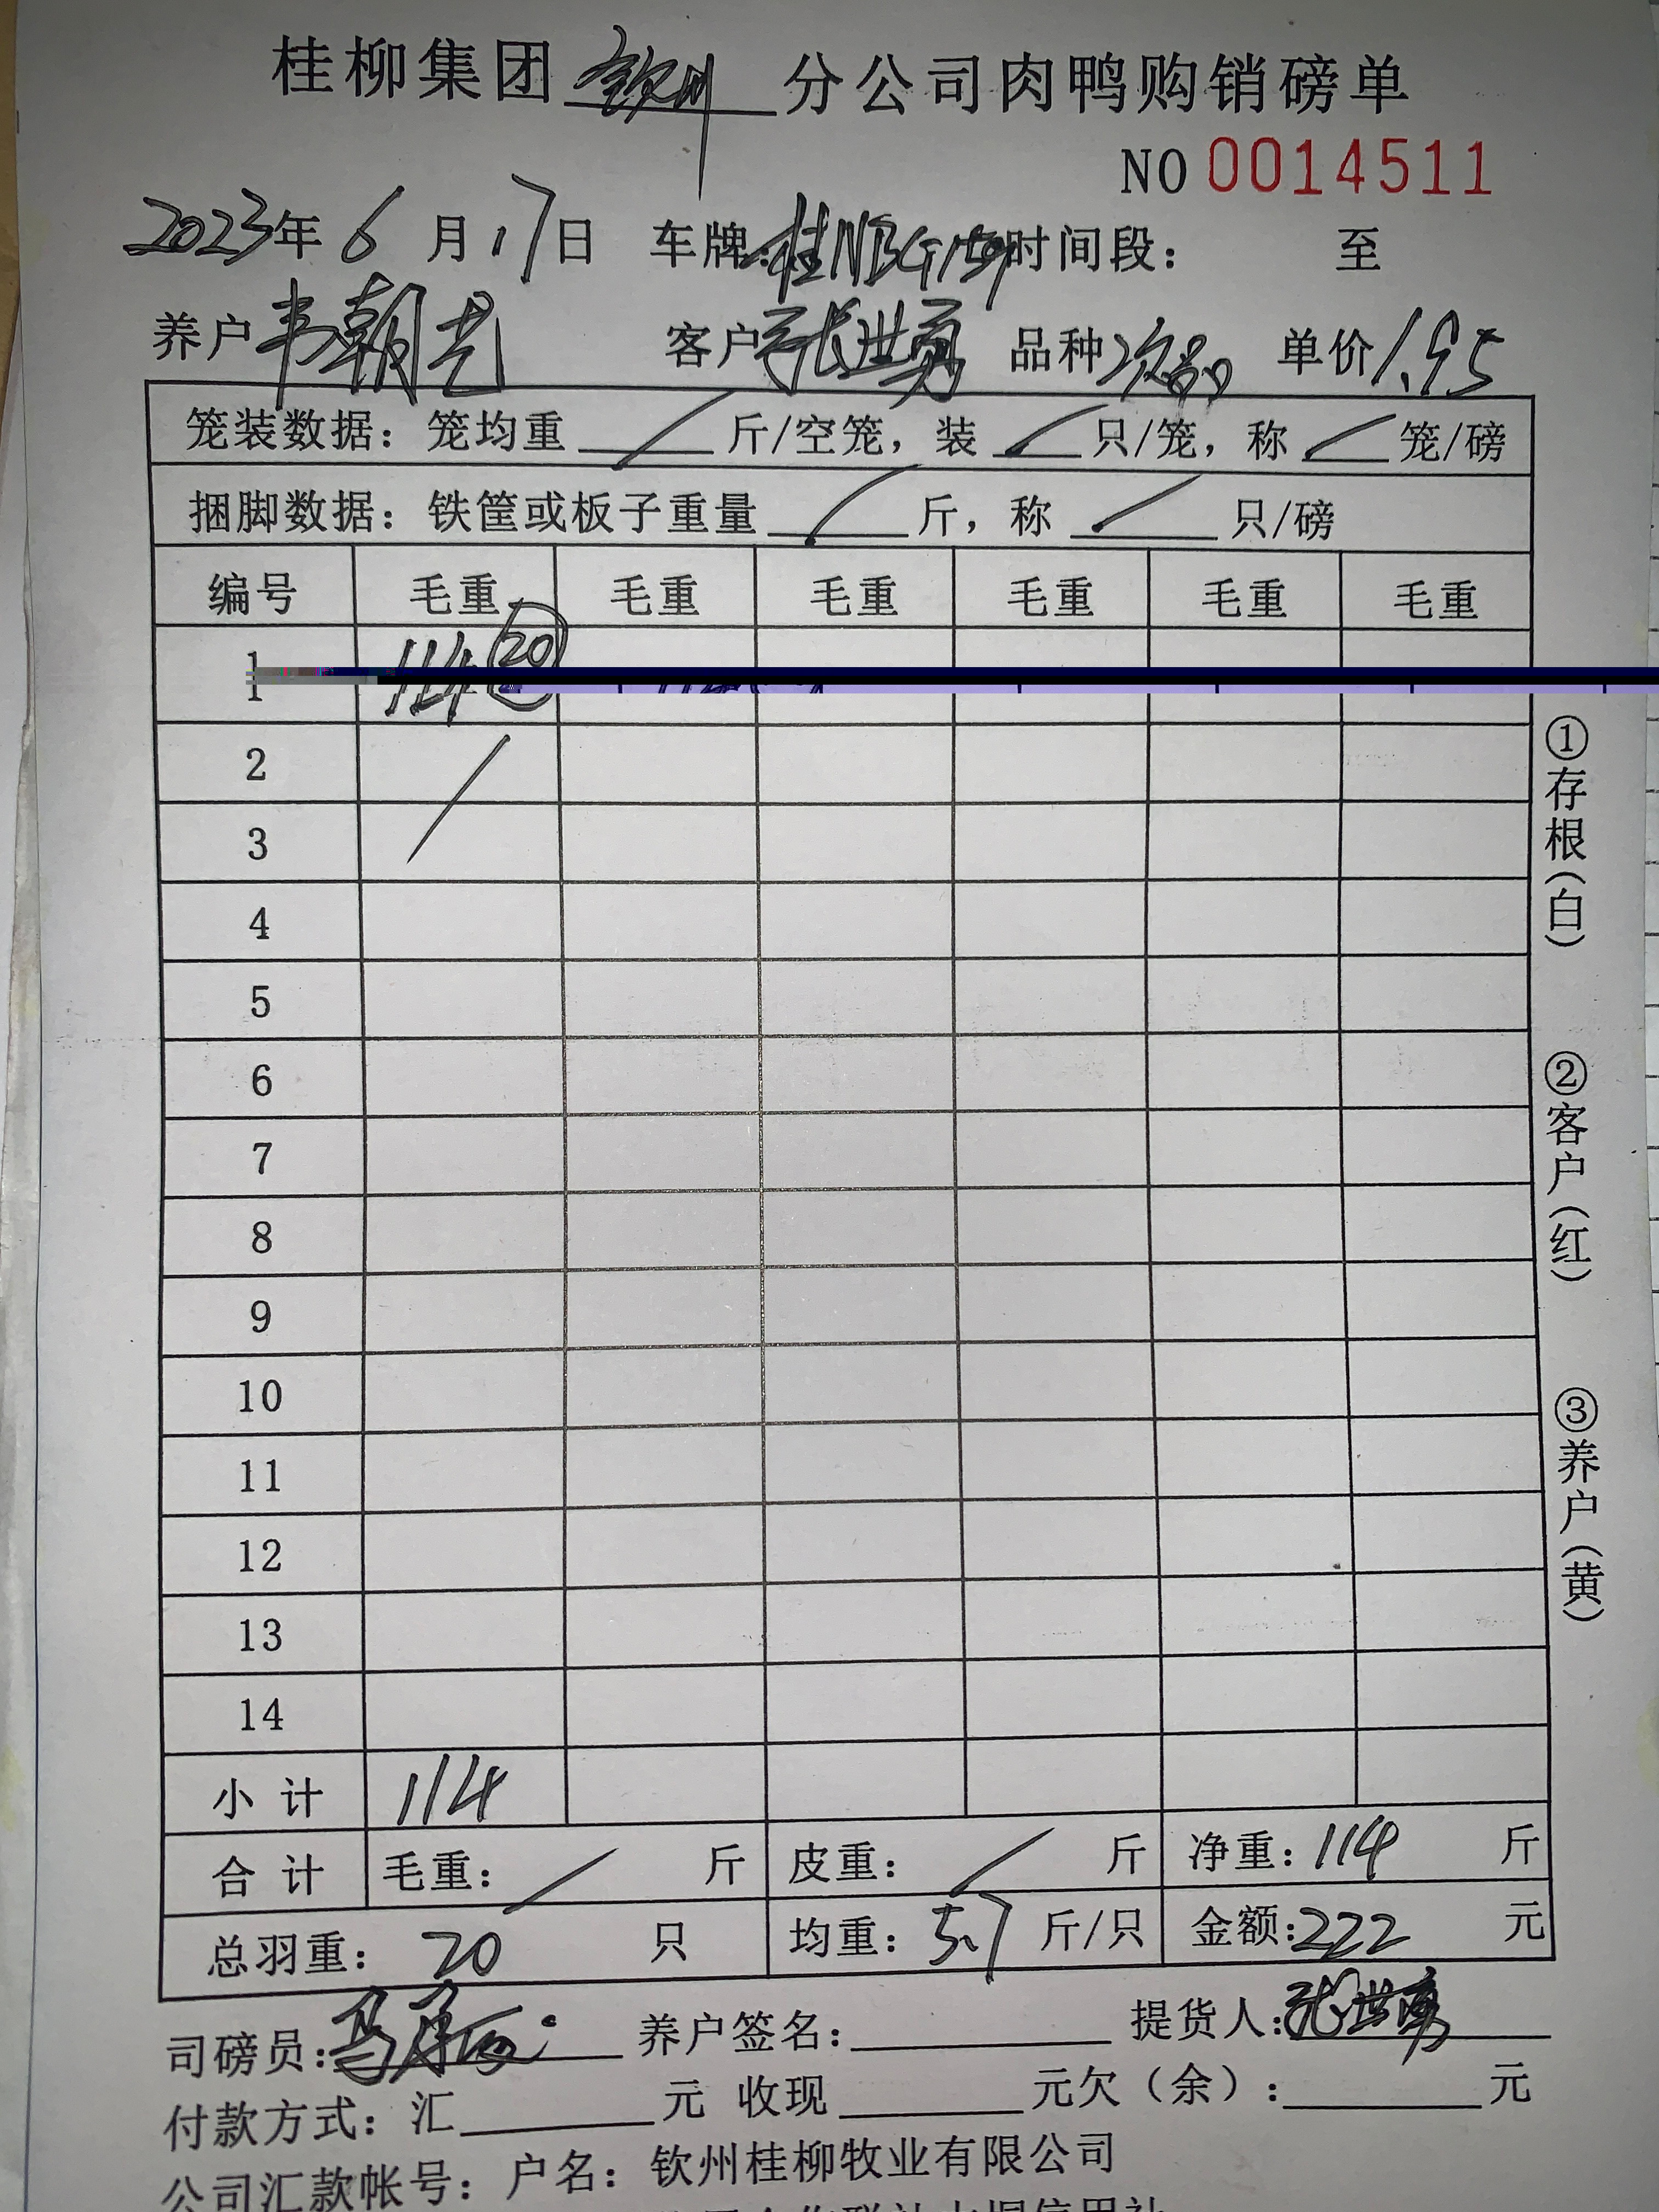 桂柳集团钦州分公司肉鸭购销磅单
NO 0014511
2023年6月17日 车牌:桂NBG159 时间段: 至
养户韦朝艺 客户张世勇 品种次品 单价1.95
笼装数据:笼均重 / 斤/空笼,装 / 只/笼,称 / 笼/磅
捆脚数据:铁筐或板子重量 / 斤,称 / 只/磅
编号 毛重 毛重 毛重 毛重 毛重 毛重
1 114 20
2 /
3
4
5
6
7
8
9
10
11
12
13
14
小计 114
合计 毛重: / 斤 皮重: / 斤 净重:114 斤
总羽重: 20 只 均重:5.7 斤/只 金额:222 元
司磅员: 养户签名: 提货人:张世勇
付款方式:汇 元 收现 元欠(余): 元
公司汇款帐号:户名:钦州桂柳牧业有限公司
①存根(白)
②客户(红)
③养户(黄)